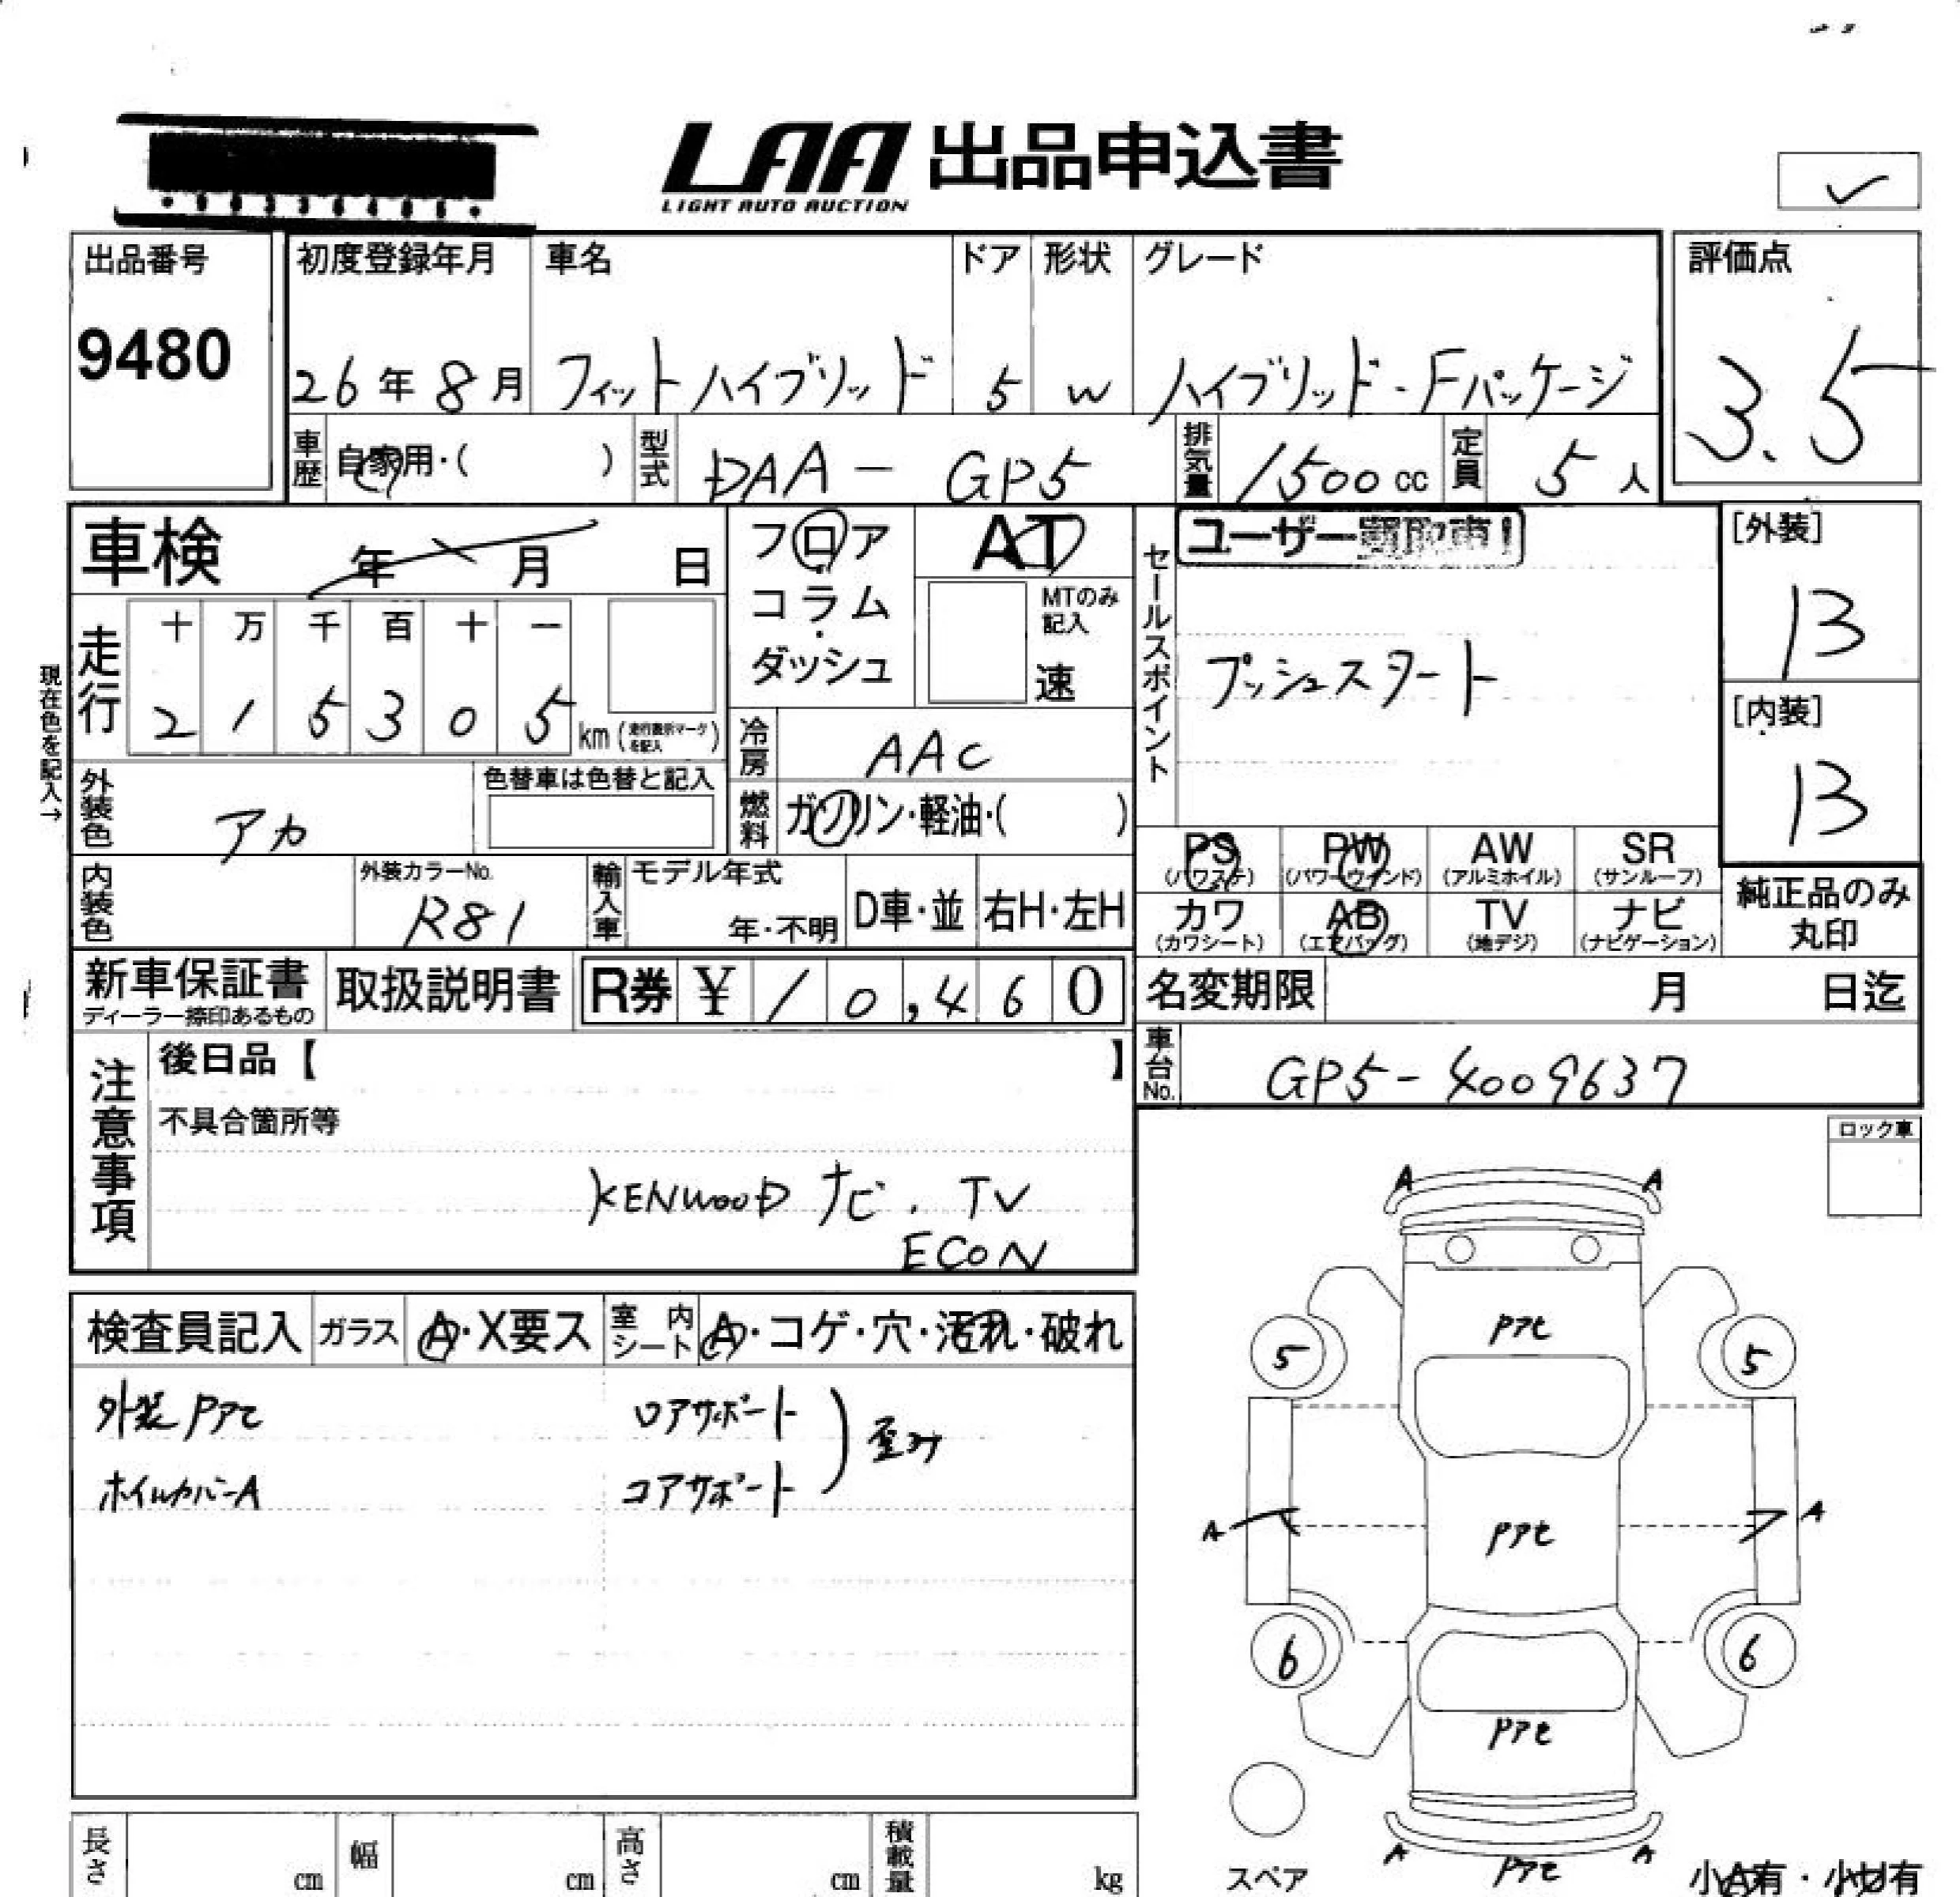 LAA 出品申込書
LIGHT AUTO AUCTION
出品番号
9480
初度登録年月
26年8月
車名
フィットハイブリッド
ドア
5
形状
W
グレード
ハイブリッド・Fパッケージ
評価点
3.5
車歴 自家用・( )
型式 DAA-GP5
排気量 1500cc
定員 5人
車検 年 月 日
走行
十 万 千 百 十 一
2 1 5 3 0 5 km(走行表示マークを記入)
現在色を記入→
外装色 アカ
色替車は色替と記入
内装色
外装カラーNo.
R81
輸入車
モデル年式
年・不明
D車・並
右H・左H
フロア
・
コラム
・
ダッシュ
AT
MTのみ記入
速
冷房 AAC
燃料 ガソリン・軽油・( )
セールスポイント
ユーザー
プッシュスタート
[外装]
13
[内装]
13
PS
(パワステ)
PW
(パワーウインド)
AW
(アルミホイル)
SR
(サンルーフ)
カワ
(カワシート)
AB
(エアバッグ)
TV
(地デジ)
ナビ
(ナビゲーション)
純正品のみ
丸印
新車保証書
ディーラー捺印あるもの
取扱説明書
R券 ¥ 10,460
名変期限 月 日迄
車台No. GP5-4009637
注意事項
後日品【 】
不具合箇所等
KENWOOD ナビ.TV
ECON
ロック車
検査員記入
ガラス A・X要ス
室内シート A・コゲ・穴・汚れ・破れ
外装PアE
ロアサポート
ホイルカバーA
コアサポート
歪み
A A
PアE
5 5
A PアE A
6 6
PアE
A PアE A
スペア
小A有・小U有
長さ cm
幅 cm
高さ cm
積載量 kg